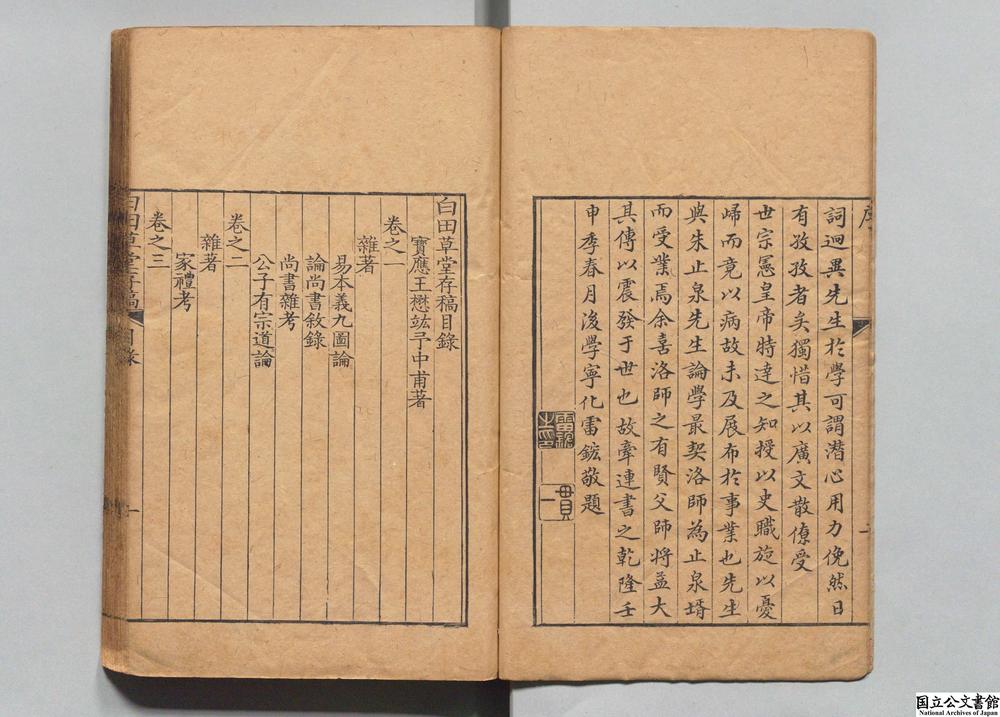 序
詞迥異先生於學可謂潛心用力俛然日
有孜孜者矣獨惜其以廣文散僚受
世宗憲皇帝特達之知授以史職旋以憂
歸而竟以病故未及展布於事業也先生
與朱止泉先生論學最契洛師為止泉壻
而受業焉余喜洛師之有賢父師將益大
其傳以震發于世也故牽連書之乾隆壬
申季春月後學寧化雷鋐敬題
雷鋐
一貫
白田草堂存稿目錄
寶應王懋竑予中甫著
卷之一
雜著
易本義九圖論
論尚書敘錄
尚書雜考
公子有宗道論
卷之二
雜著
家禮考
卷之三
白田草堂存稿 目錄 一
国立公文書館
National Archives of Japan